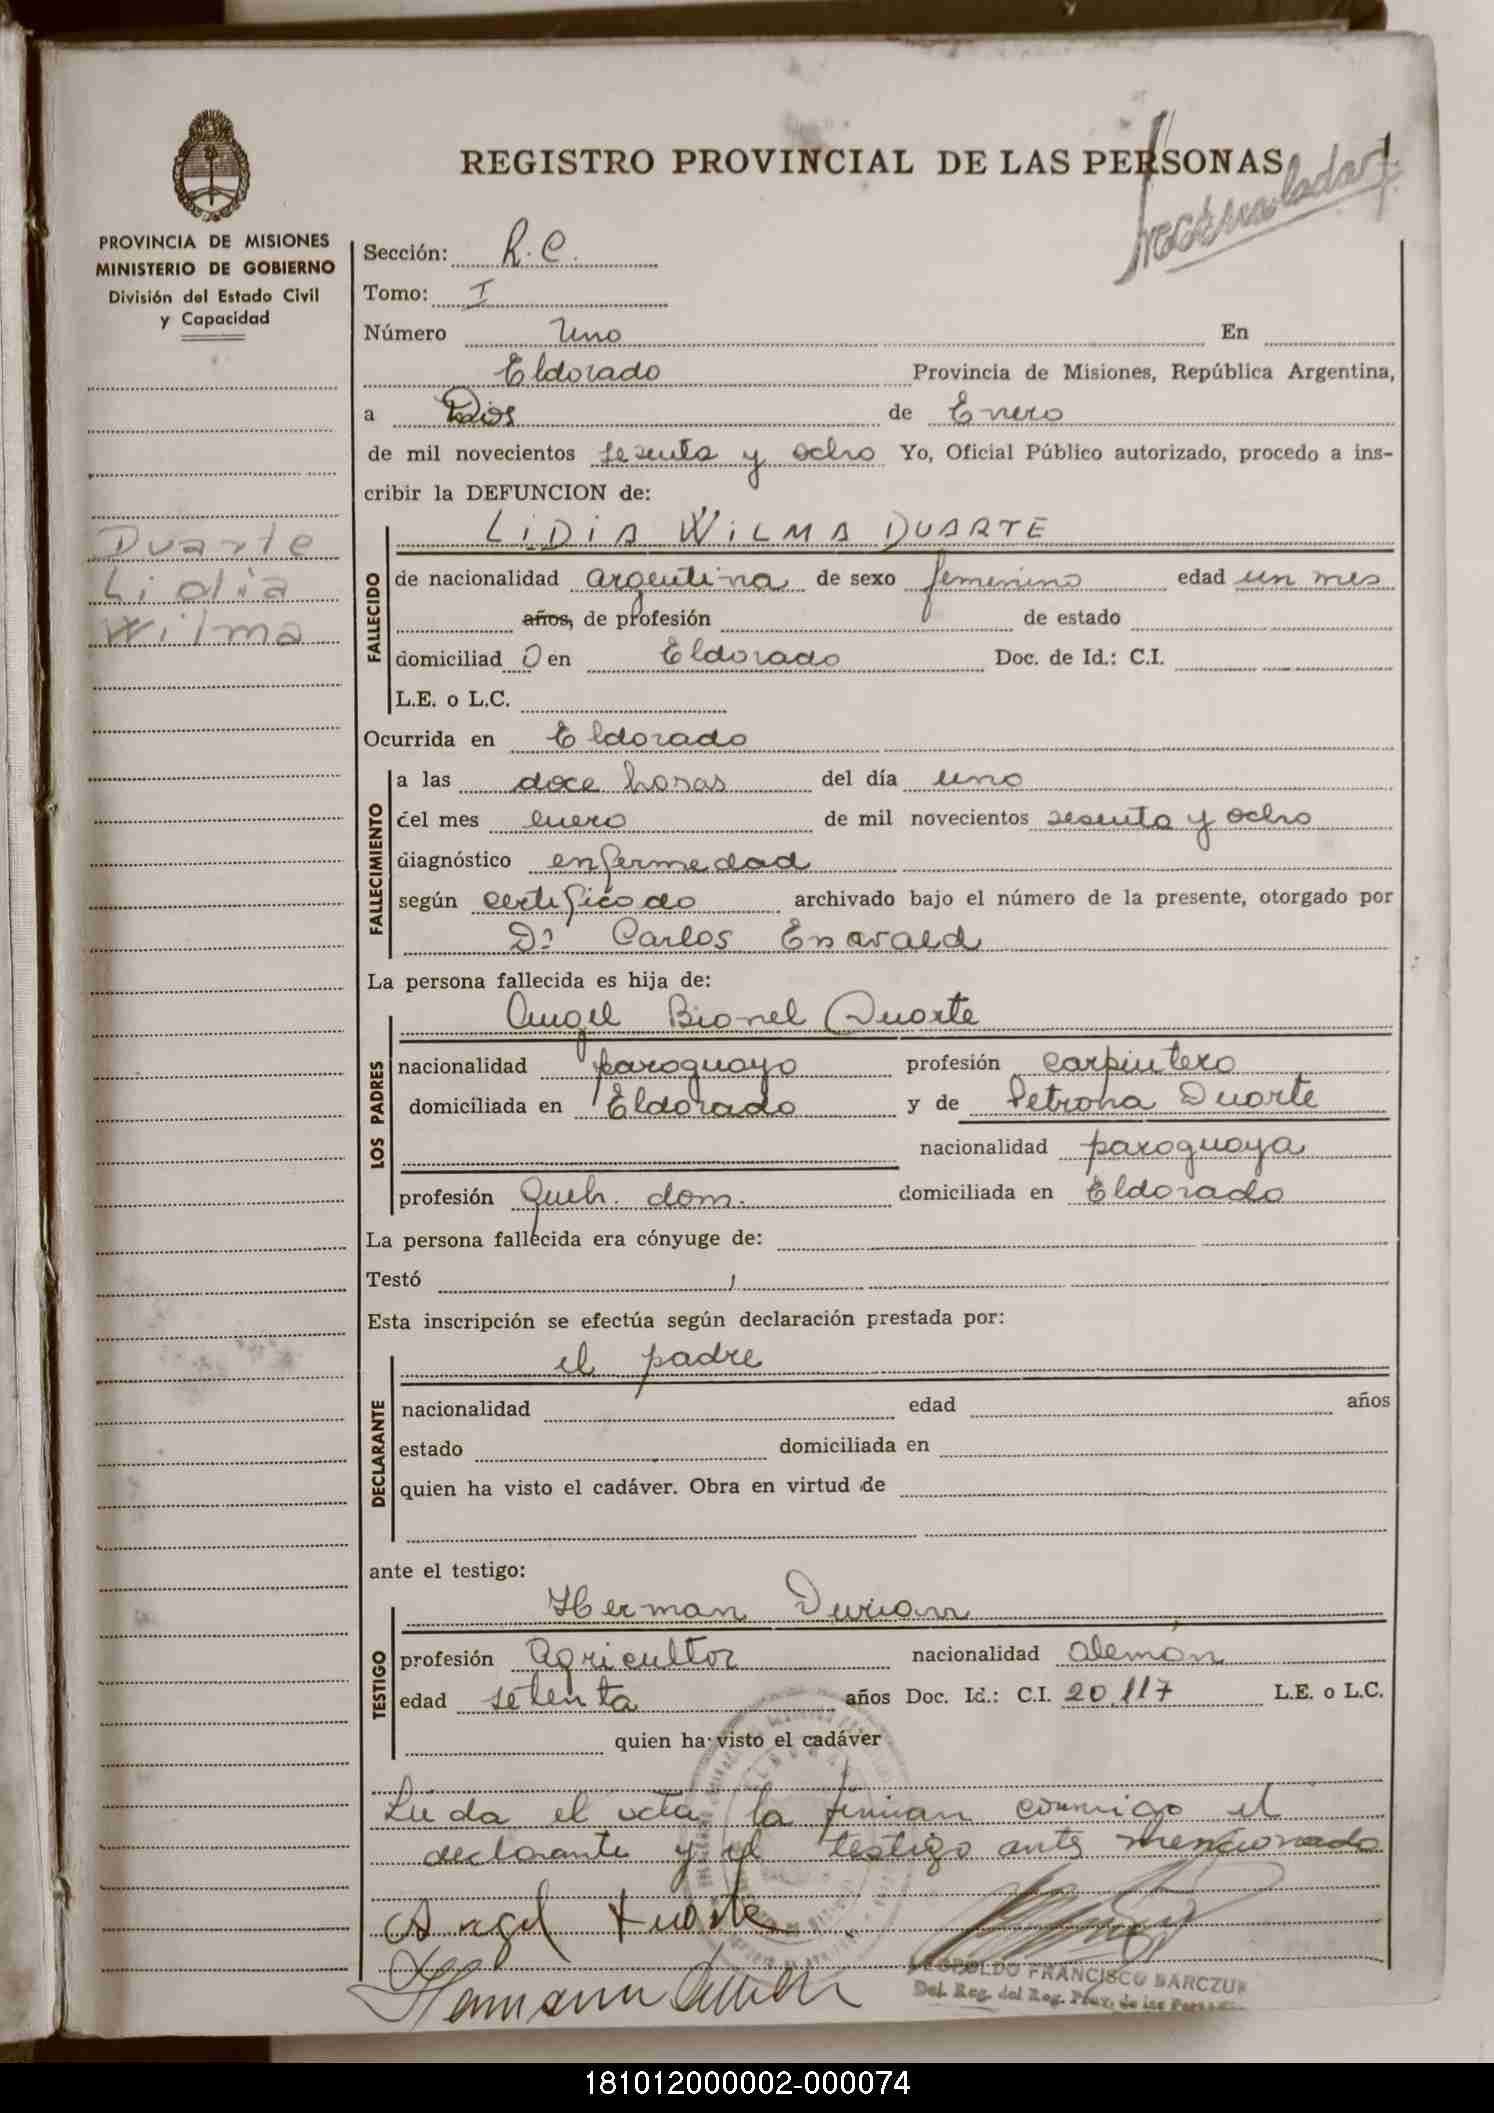 REGISTRO PROVINCIAL DE LAS PERSONAS
PROVINCIA DE MISIONES
MINISTERIO DE GOBIERNO
División del Estado Civil
y Capacidad
Duarte
Lidia
Wilma
Sección: R. C.
Tomo: I
Número Uno En
Eldorado Provincia de Misiones, República Argentina,
a Dios de Enero
de mil novecientos sesenta y ocho Yo, Oficial Público autorizado, procedo a ins-
cribir la DEFUNCION de:
FALLECIDO
LIDIA WILMA DUARTE
de nacionalidad argentina de sexo femenino edad un mes
años, de profesión de estado
domiciliad O en Eldorado Doc. de Id.: C.I.
L.E. o L.C.
Ocurrida en Eldorado
FALLECIMIENTO
a las doce horas del día uno
del mes enero de mil novecientos sesenta y ocho
diagnóstico enfermedad
según certificado archivado bajo el número de la presente, otorgado por
Dr Carlos
La persona fallecida es hija de:
LOS PADRES
Angel Bionel Duarte
nacionalidad paraguayo profesión carpintero
domiciliada en Eldorado y de Petrona Duarte
nacionalidad paraguaya
profesión Queh. dom. domiciliada en Eldorado
La persona fallecida era cónyuge de:
Testó
Esta inscripción se efectúa según declaración prestada por:
DECLARANTE
el padre
nacionalidad edad años
estado domiciliada en
quien ha visto el cadáver. Obra en virtud de
ante el testigo:
TESTIGO
Herman
profesión Agricultor nacionalidad alemán
edad setenta años Doc. Id.: C.I. 20.117 L.E. o L.C.
quien ha visto el cadáver
Leida el acta, la firman conmigo el
declarante y el testigo antes mencionado
Angel Duarte
Hermann
LEOPOLDO FRANCISCO BARCZUK
Del. Reg. del Reg. Prov. de las Personas
181012000002-000074